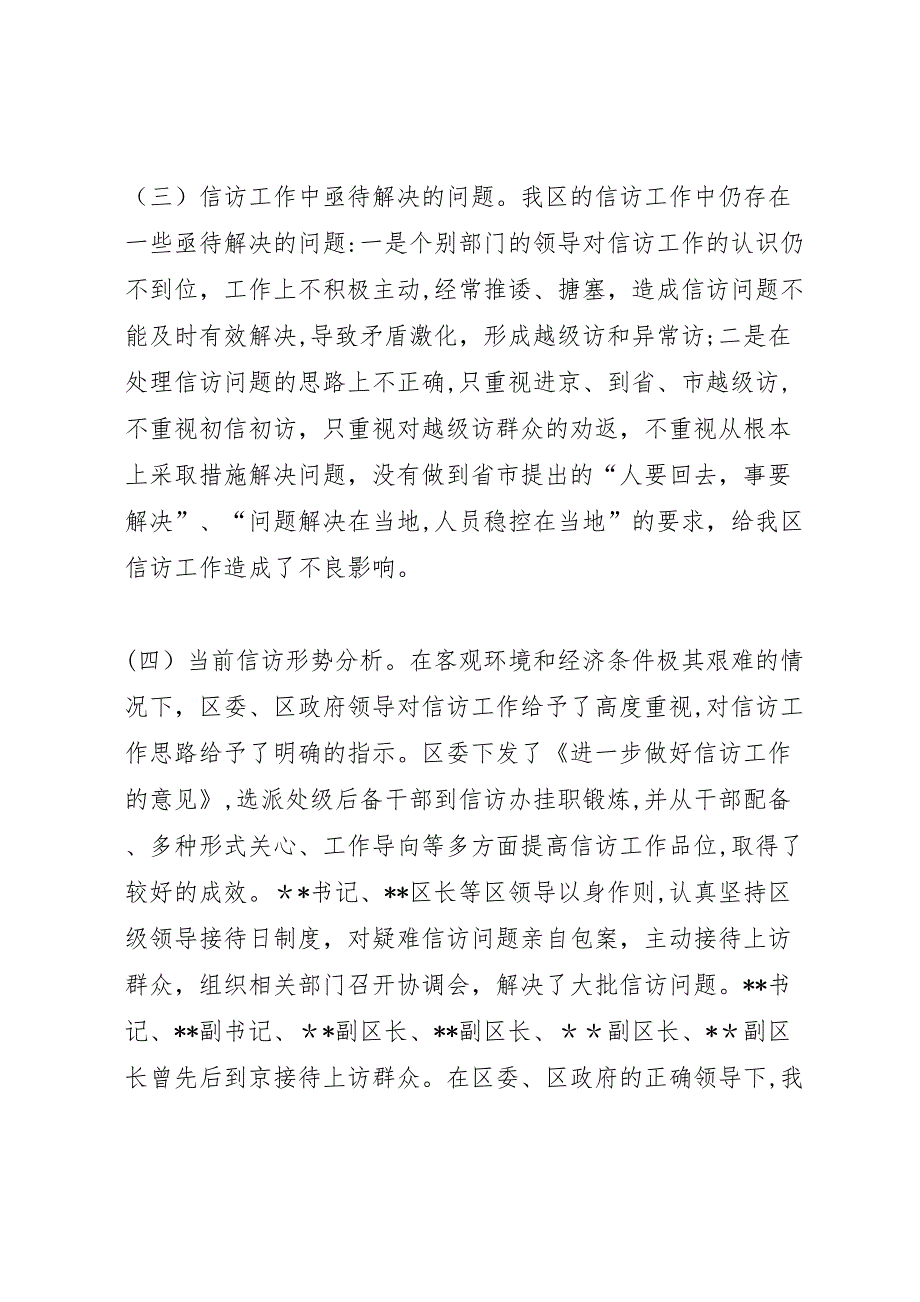 （三）信访工作中亟待解决的问题。我区的信访工作中仍存在
一些亟待解决的问题:一是个别部门的领导对信访工作的认识仍
不到位，工作上不积极主动,经常推诿、搪塞，造成信访问题不
能及时有效解决,导致矛盾激化，形成越级访和异常访;二是在
处理信访问题的思路上不正确,只重视进京、到省、市越级访,
不重视初信初访，只重视对越级访群众的劝返，不重视从根本
上采取措施解决问题，没有做到省市提出的“人要回去，事要
解决”、“问题解决在当地,人员稳控在当地”的要求，给我区
信访工作造成了不良影响。
(四）当前信访形势分析。在客观环境和经济条件极其艰难的情
况下，区委、区政府领导对信访工作给予了高度重视,对信访工
作思路给予了明确的指示。区委下发了《进一步做好信访工作
的意见》,选派处级后备干部到信访办挂职锻炼,并从干部配备
、多种形式关心、工作导向等多方面提高信访工作品位,取得了
较好的成效。＊*书记、**区长等区领导以身作则,认真坚持区
级领导接待日制度，对疑难信访问题亲自包案，主动接待上访
群众，组织相关部门召开协调会，解决了大批信访问题。**书
记、**副书记、＊*副区长、**副区长、＊＊副区长、*＊副区
长曾先后到京接待上访群众。在区委、区政府的正确领导下,我